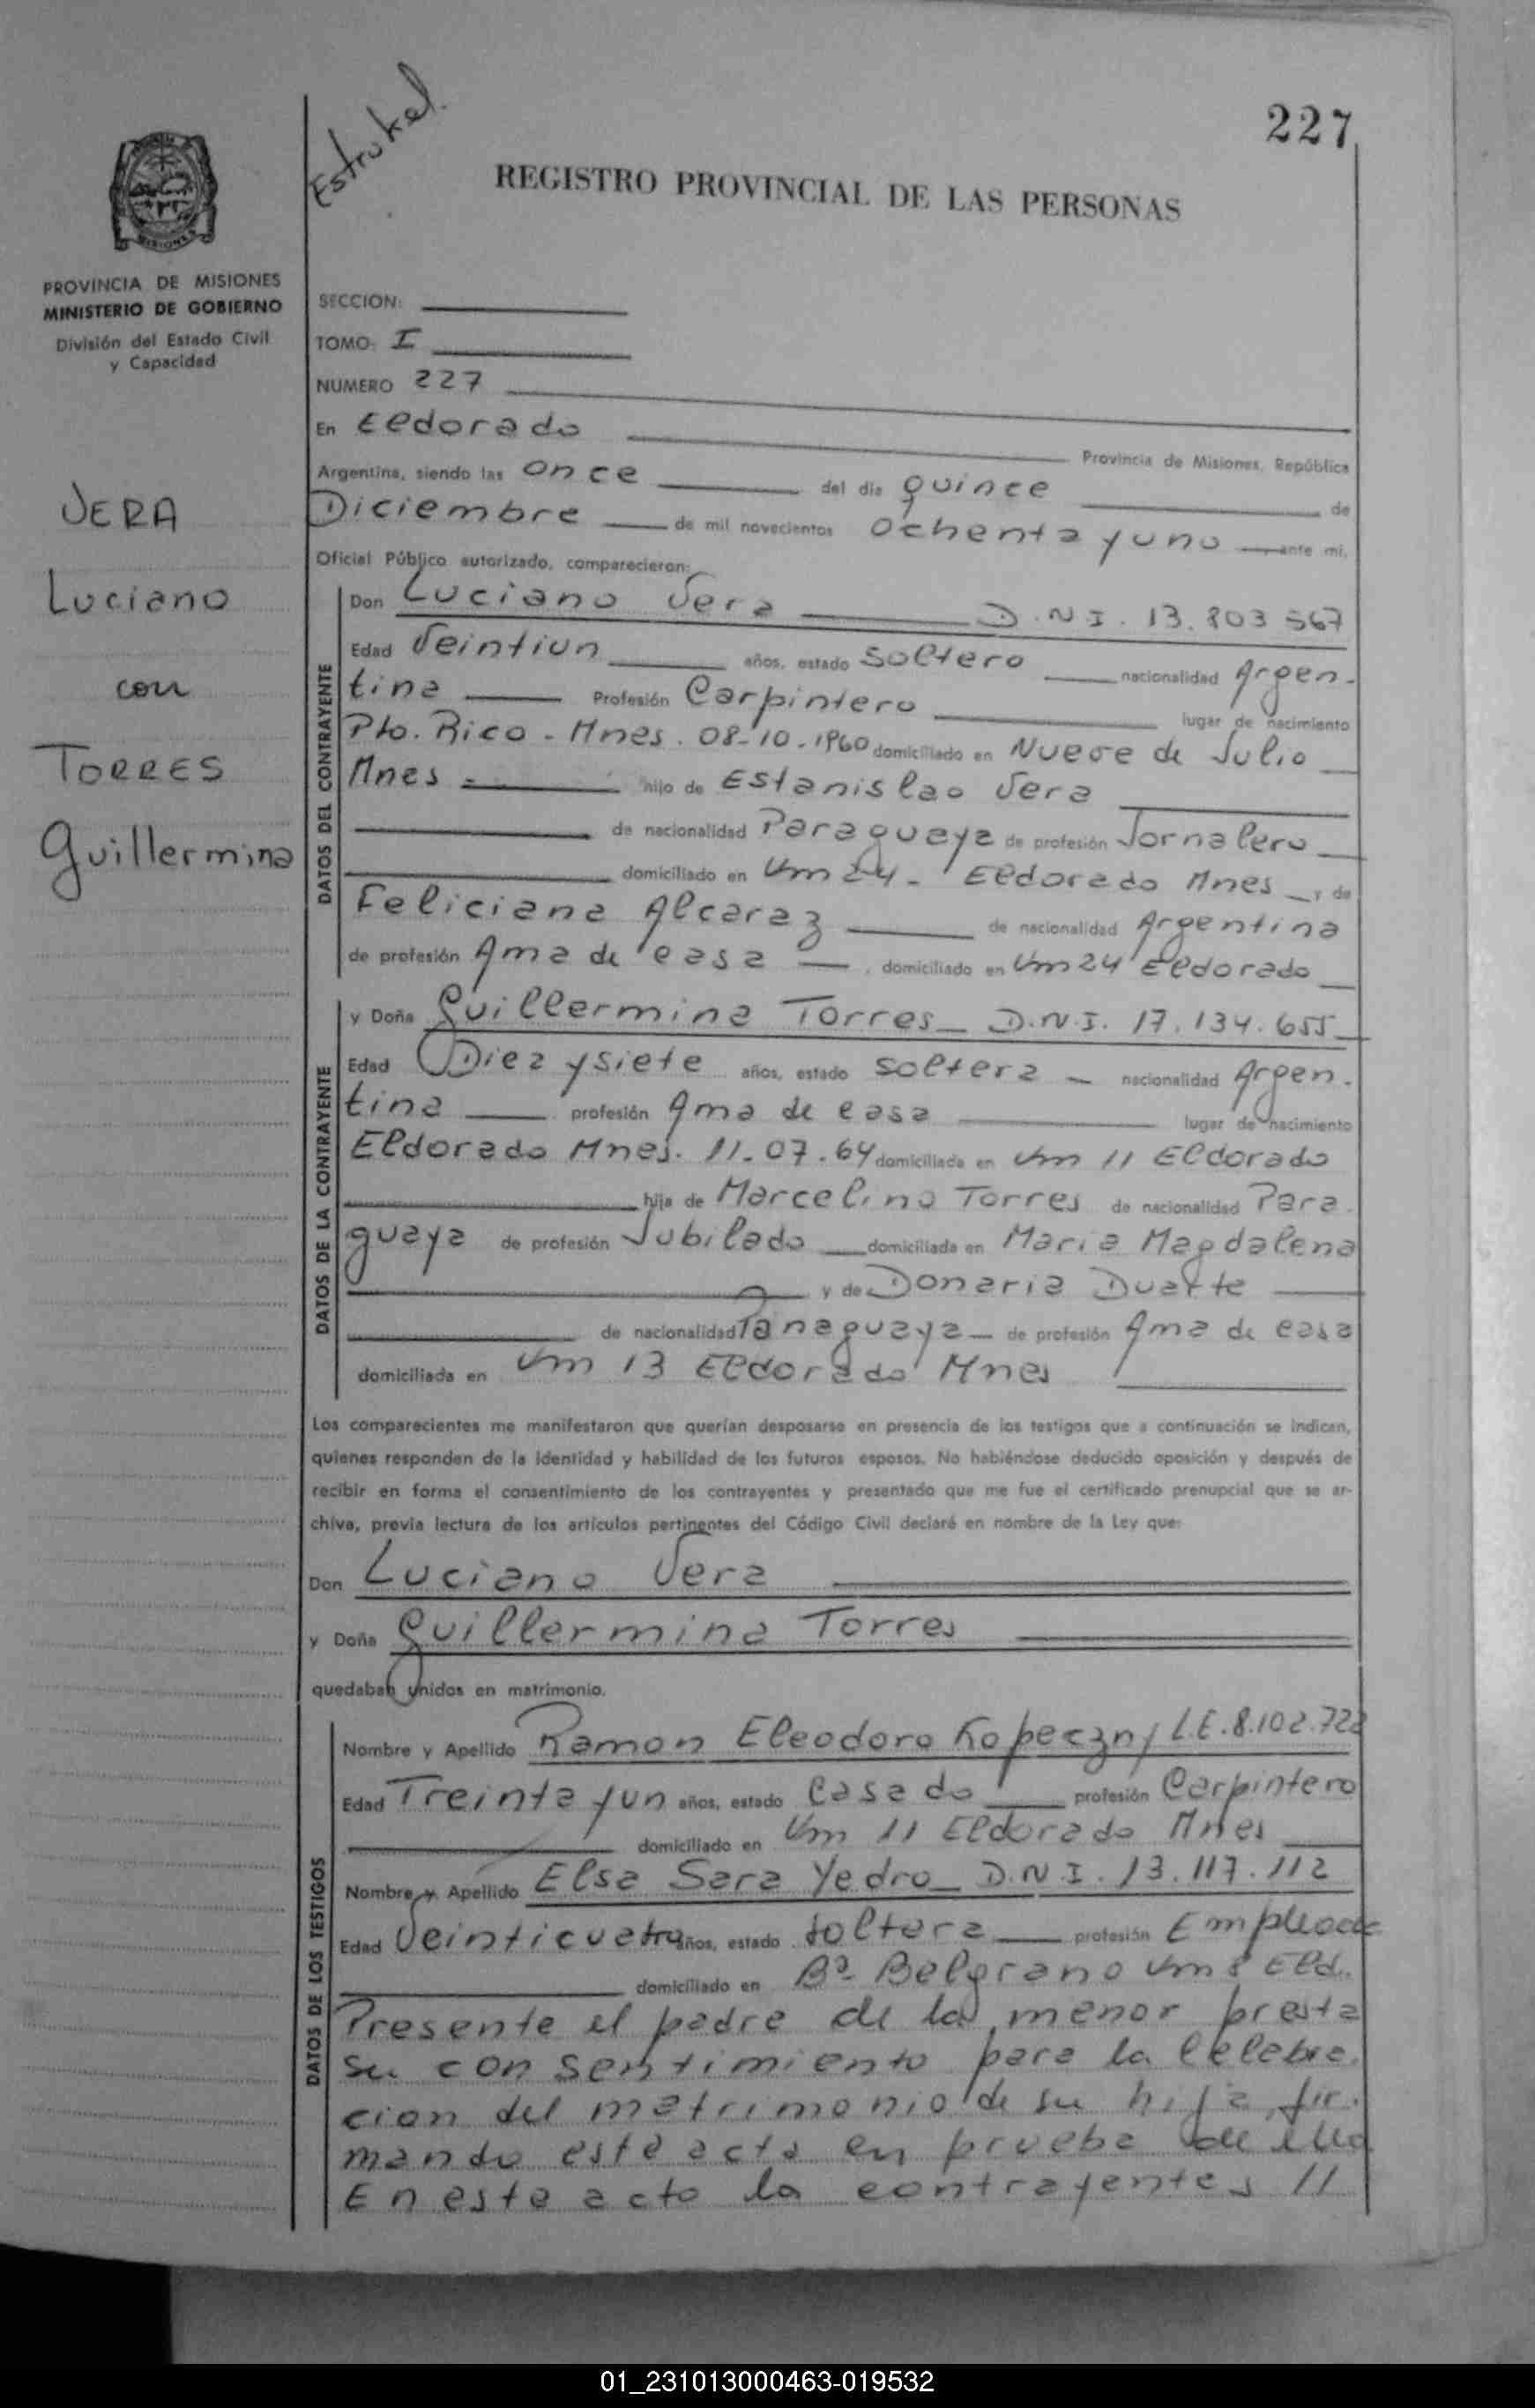 227
Estrukel.
REGISTRO PROVINCIAL DE LAS PERSONAS
MISIONES
PROVINCIA DE MISIONES
MINISTERIO DE GOBIERNO
División del Estado Civil
y Capacidad
VERA
Luciano
con
TORRES
Guillermina
SECCION:
TOMO: I
NUMERO 227
En Eldorado Provincia de Misiones, República
Argentina, siendo las once del día quince de
Diciembre de mil novecientos ochenta y uno ante mi,
Oficial Público autorizado, comparecieron:
DATOS DEL CONTRAYENTE
Don Luciano Vera D.N.I. 13.803 567
Edad Veintiun años, estado Soltero nacionalidad Argen-
tina Profesión Carpintero lugar de nacimiento
Pto. Rico - Mnes. 08-10-1960 domiciliado en Nueve de Julio
Mnes hijo de Estanislao Vera
de nacionalidad Paraguaya de profesión Jornalero
domiciliado en Km 24 - Eldorado Mnes y de
Feliciana Alcaraz de nacionalidad Argentina
de profesión Ama de casa, domiciliado en Km 24 Eldorado
DATOS DE LA CONTRAYENTE
y Doña Guillermina Torres D.N.I. 17.134.655
Edad Diez y siete años, estado soltera nacionalidad Argen-
tina profesión Ama de casa lugar de nacimiento
Eldorado Mnes. 11-07-64 domiciliada en Km 11 Eldorado
hija de Marcelino Torres de nacionalidad Para
guaya de profesión Jubilado domiciliada en Maria Magdalena
y de Donaria Duarte
de nacionalidad Paraguaya de profesión Ama de casa
domiciliada en Km 13 Eldorado Mnes
Los comparecientes me manifestaron que querían desposarse en presencia de los testigos que a continuación se indican,
quienes responden de la identidad y habilidad de los futuros esposos. No habiéndose deducido oposición y después de
recibir en forma el consentimiento de los contrayentes y presentado que me fue el certificado prenupcial que se ar-
chiva, previa lectura de los artículos pertinentes del Código Civil declaré en nombre de la Ley que:
Don Luciano Vera
y Doña Guillermina Torres
quedaban unidos en matrimonio.
DATOS DE LOS TESTIGOS
Nombre y Apellido Ramon Eleodoro Kopeczny L.E. 8.102.722
Edad Treinta y un años, estado Casado profesión Carpintero
domiciliado en Km 11 Eldorado Mnes
Nombre y Apellido Elsa Sara Yedro D.N.I. 13.117.112
Edad Veinticuatro años, estado soltera profesión Empleada
domiciliado en Bº Belgrano Km 8 Eld.
Presente el padre de la menor presta
su consentimiento para la celebra
cion del matrimonio de su hija, fir-
mando este acta en prueba de ello
En este acto la contrayentes //
01_231013000463-019532